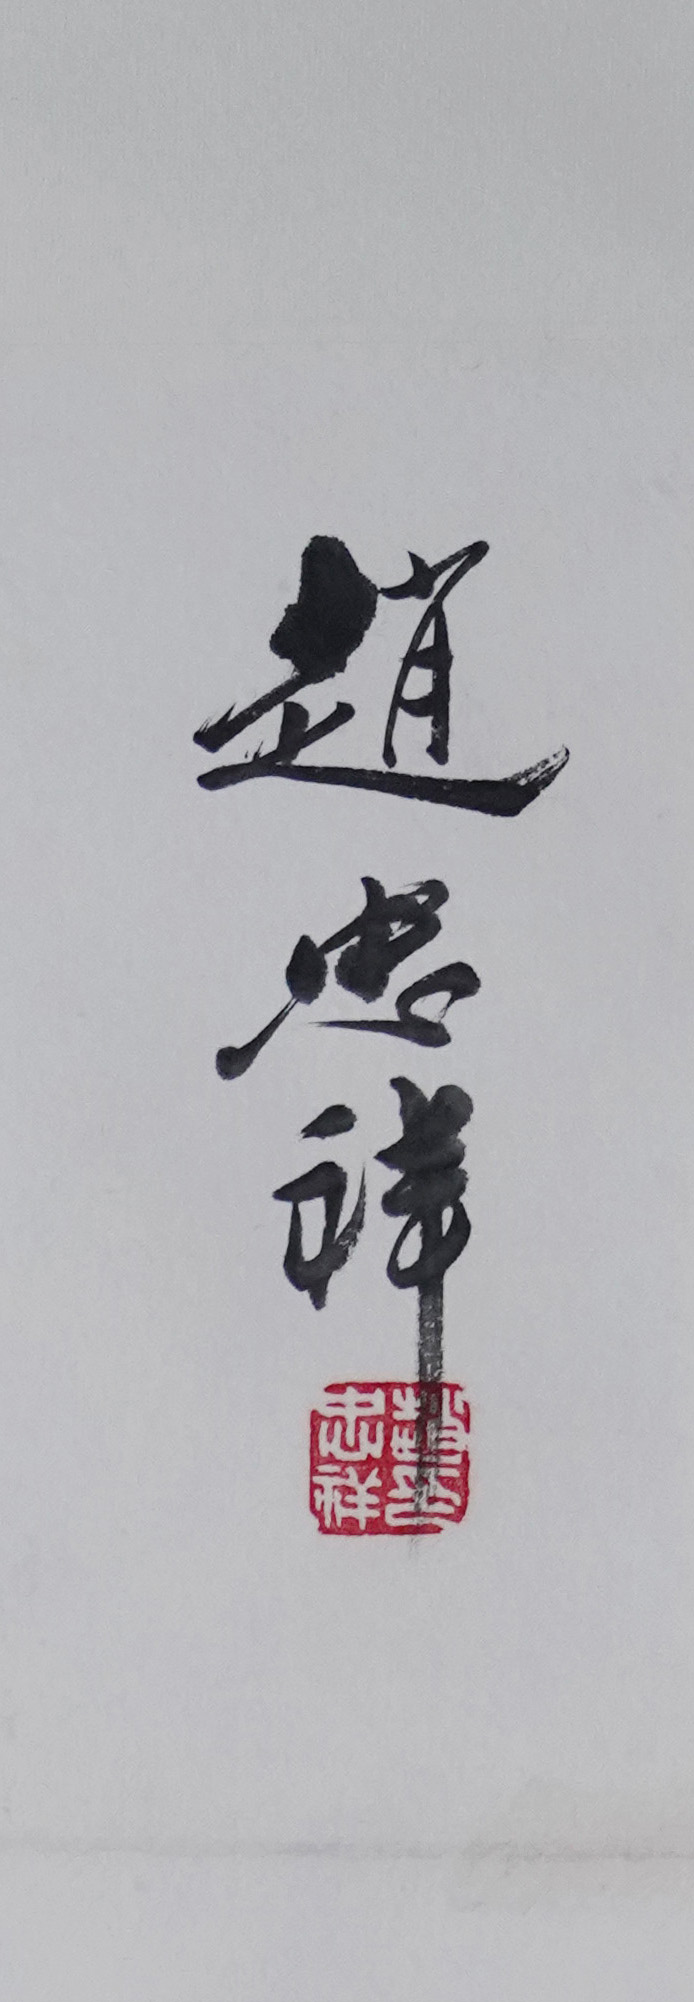 趙忠祥
趙印
忠祥